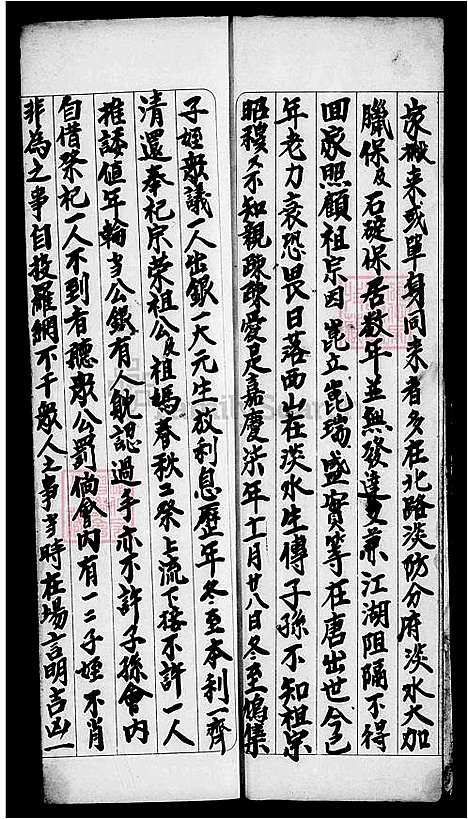 家搬来或單身同来者多在北路淡防分府淡水大加
臘保及石碇保居数年並無發達更兼江湖阻隔不得
回家照顧祖宗因崑立崑瑞盛實等在唐出世今已
年老力衰恐畏日落西山在淡水生傳子孫不知祖宗
昭穆又不知親疎疎愛是嘉慶柒年十一月廿八日冬至鳩集
子姪衆議一人出銀一大元生放利息歷年冬至本利一齊
清還奉祀宗榮祖公及祖媽春秋二祭上流下接不許一人
推諉值年輪当公銀有人躭認過手亦不許子孫會内
自借祭祀一人不到者聽衆公罰倘會内有一二子姪不肖
非為之事自投羅網不干衆人之事当時在場言明吉凶一